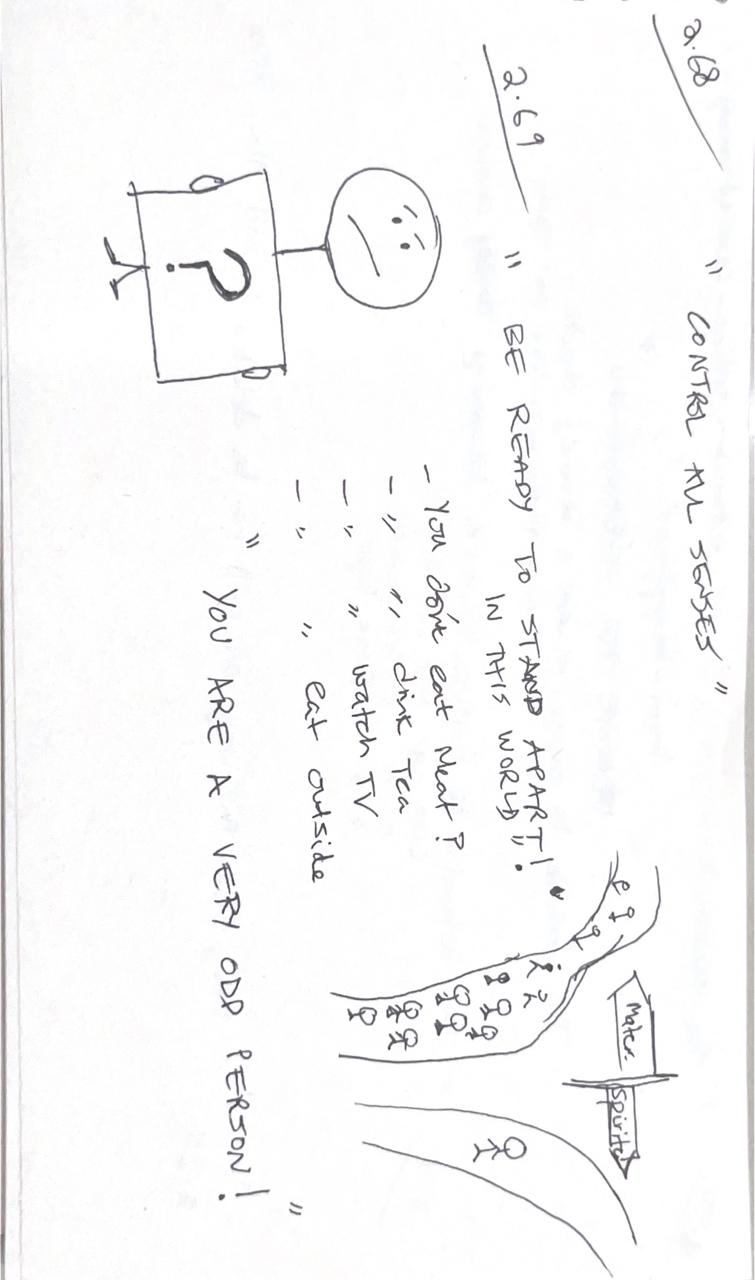 2.68
" CONTROL ALL SENSES "
2.69
" BE READY TO STAND APART! "
IN THIS WORLD
- You don't eat Meat?
- " " drink Tea
- " " watch TV
- " " eat outside
" YOU ARE A VERY ODD PERSON! "
?
Mater.
Spirital